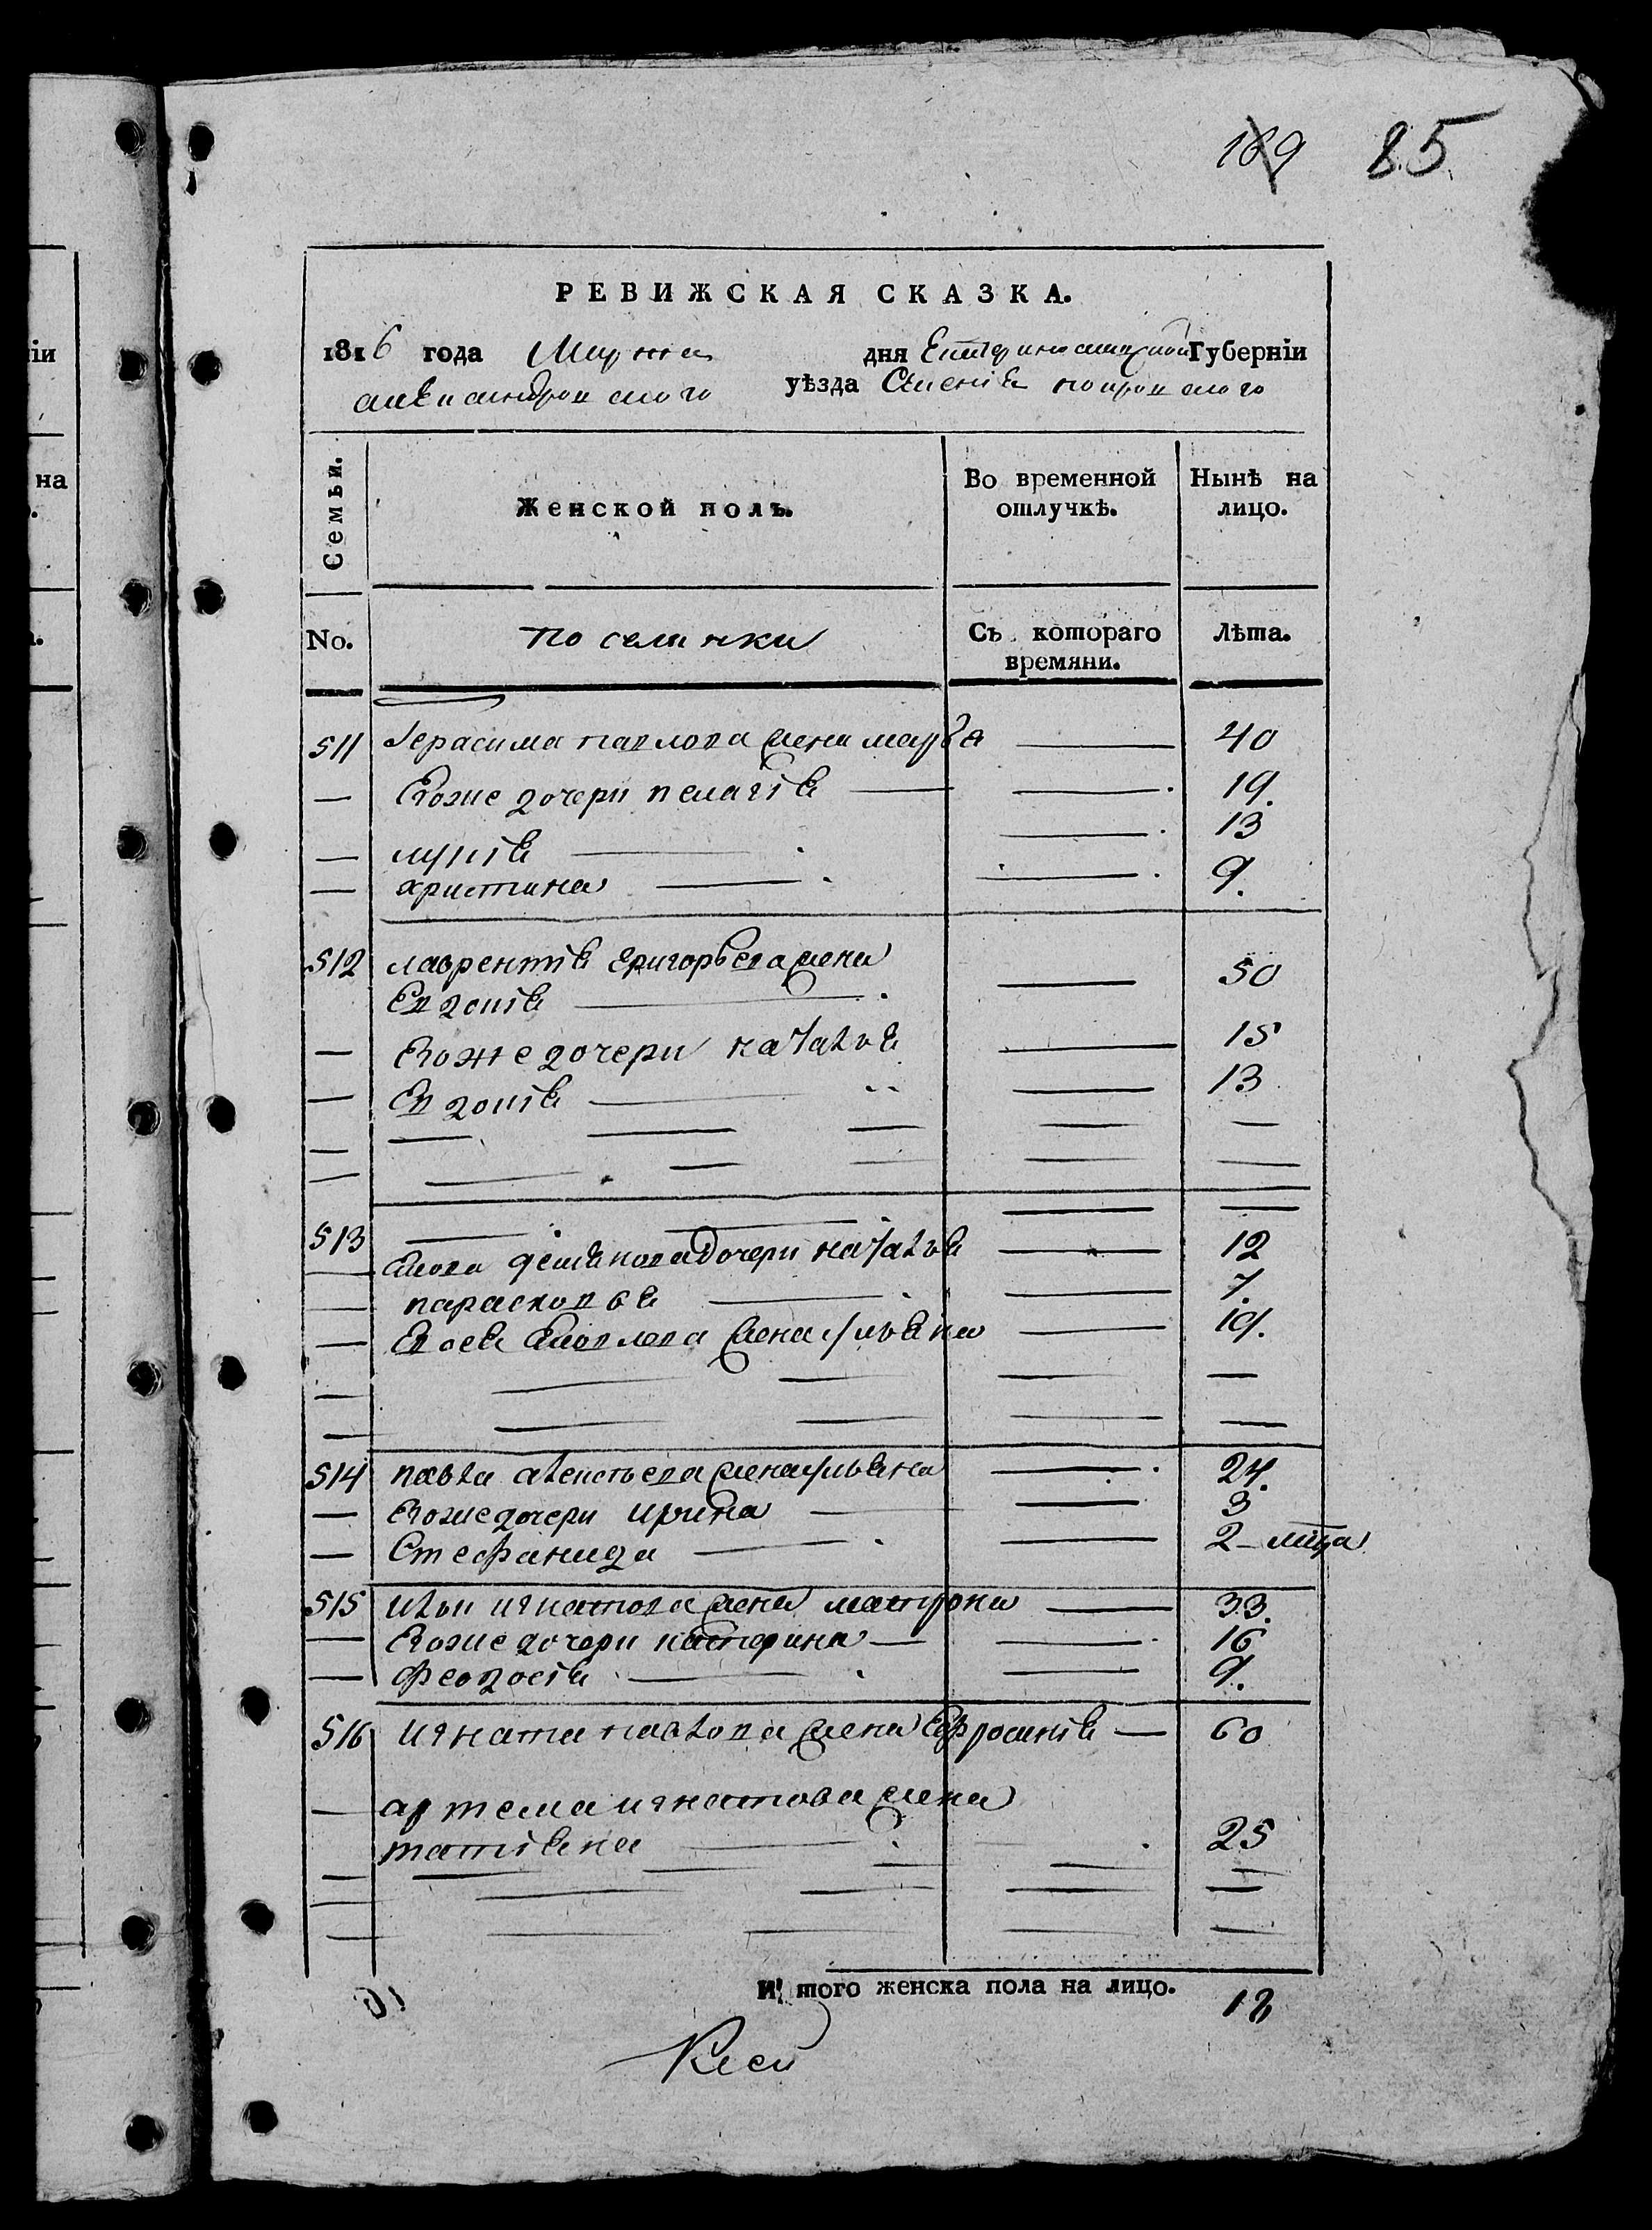 189 85
РЕВИЖСКАЯ СКАЗКА.
1816 года Марта дня Екатеринославской Губерніи
александрийского уѣзда Селенія покровского
Семьи.
Женской полъ.
Во временной отлучкѣ.
Нынѣ на лицо.
No.
поселянки
Съ котораго времяни.
Лѣта.
511 Герасима павлова жена марѳа 40
Егоже дочери пелагія 19.
марія 13
христина 9.
512 лаврентія Григорьева жена
Евдокія 50
Егоже дочери наталья 15
Евдокія 13
513
дочери наталья 12
парасковья 7.
жена ульяна 19.
514 павла алексѣева жена ульяна 24.
Егоже дочери ирина 3
Стефанида 2 мца
515 игнатова жена матрона 33.
Егоже дочери катерина 16
феодосія 9.
516 игната павлова жена Ефросинія 60
артема игнатова жена
татіяна 25
И того женска пола на лицо. 18
16